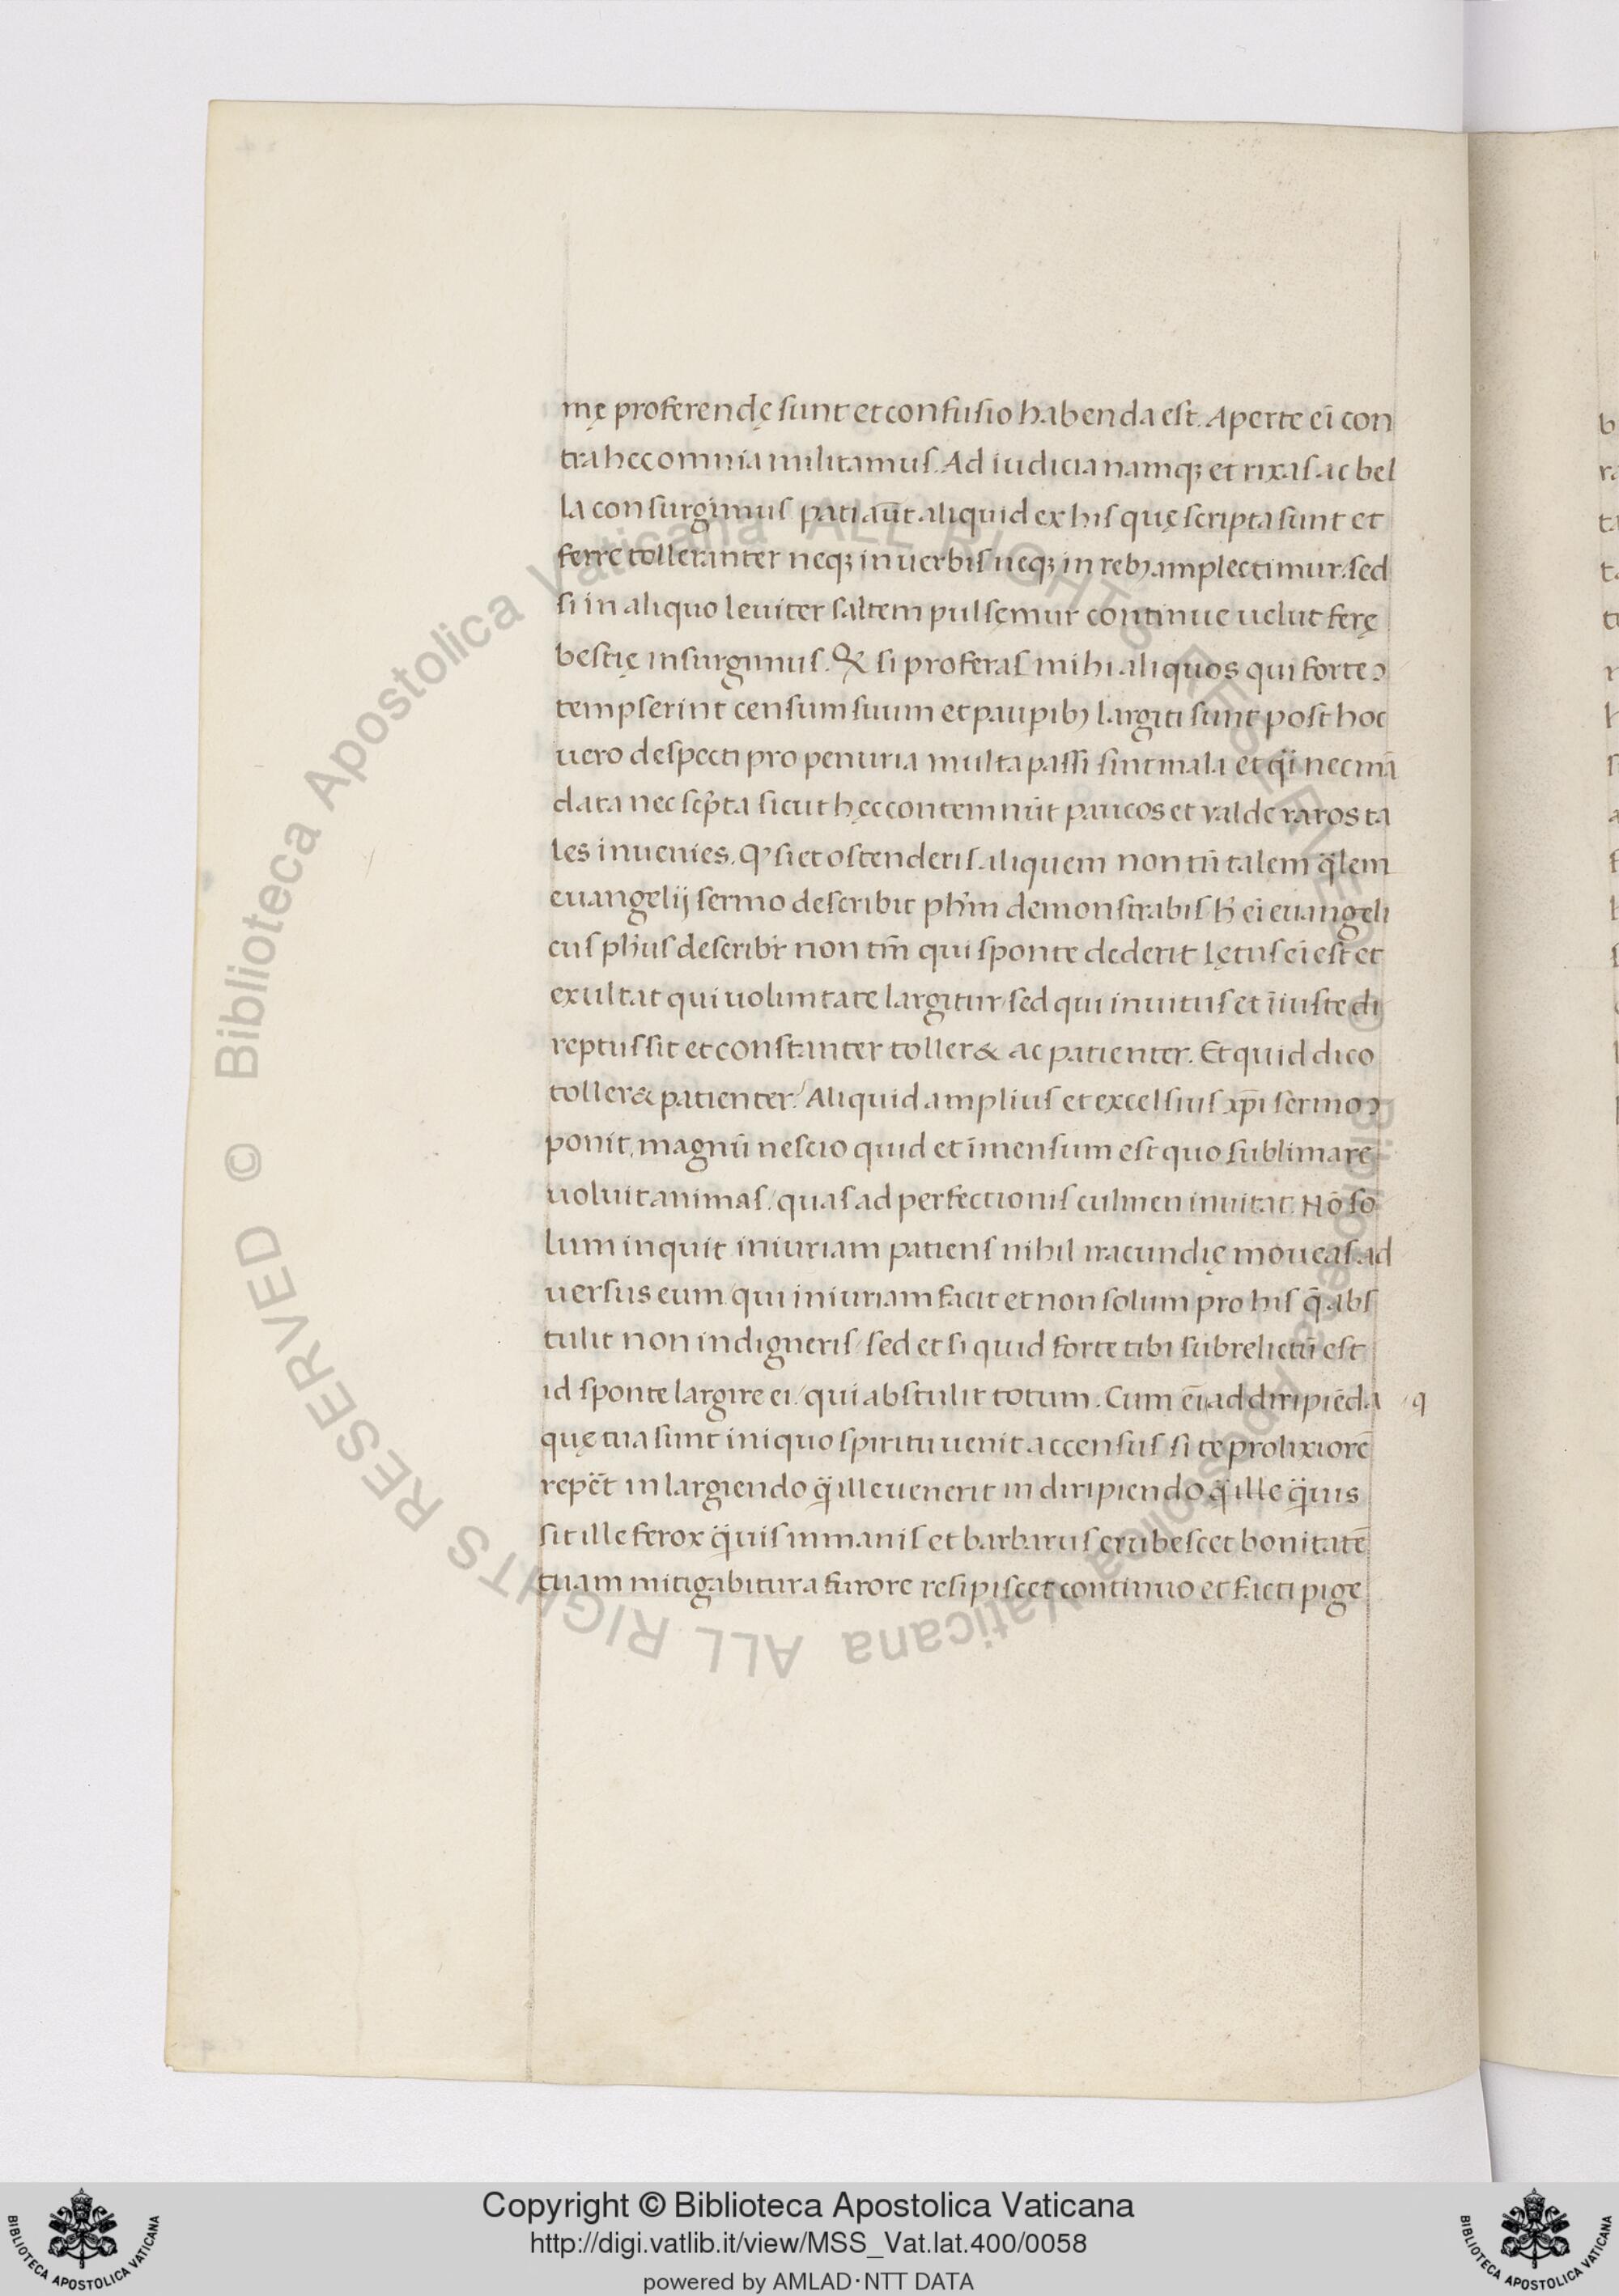 mę proferendę sunt et confusio habenda est. Aperte ei͂ con
tra hec omnia militamus. Ad iudicia namq; et rixas ac bel
la consurgimus pati aūt aliquid ex his quę scripta sunt et
ferre tolleranter neq; in uerbis neq; in reb; amplectimur. sed
si in aliquo leuiter saltem pulsęmur continue uelut ferę
bestię insurgimus. Q si proferas mihi aliquos qui forte ↄ
tempserint censum suum et paupib; largiti sunt post hoc
uero despecti pro penuria multa passi sint mala et q̈i nec mā
data nec scp̃ta sicut hęc contemnūt paucos et valde raros ta
les inuenies. Qꝫ si et ostenderis aliquem non tn̄ talem q̈lem
euangelij sermo describit ph̄m demonstrabis. h̄ ei͂ euangeli
cus ph̄us describir̃ non tm̄ qui sponte dederit Lętus ei͂ est et
exultat qui uoluntate largitur sed qui inuitus et īiuste di
reptus sit et constanter toller& ac patienter. Et quid dico
toller& patienter? Aliquid amplius et excelsius xp̄i sermo ↄ
ponit, magnū nescio quid et īmensum est quo sublimare
uoluit animas / quas ad perfectionis culmen inuitat. Nō so
lum inquit iniuriam patiens nihil iracundię moueas ad
uersus eum / qui iniuriam facit et non solum pro his q̄ abs
tulit non indigneris / sed et si quid forte tibi subrelictū est
id sponte largire ei / qui abstulit totum. Cum ei͂ ad diripiēda / q
quę tua sunt iniquo spiritu uenit accensus si te prolixiorē
repet̄ in largiendo q̈ ille uenerit in diripiendo q̈ ille q̈uis
sit ille ferox q̈uis inmanis et barbarus erubescet bonitatē
tuam mitigabitur a furore resipiscet continuo et facti pige
© Biblioteca Apostolica Vaticana ALL RIGHTS RESERVED
© Biblioteca Apostolica Vaticana ALL RIGHTS RESERVED
Copyright © Biblioteca Apostolica Vaticana
http://digi.vatlib.it/view/MSS_Vat.lat.400/0058
powered by AMLAD·NTT DATA
BIBLIOTECA APOSTOLICA VATICANA
BIBLIOTECA APOSTOLICA VATICANA